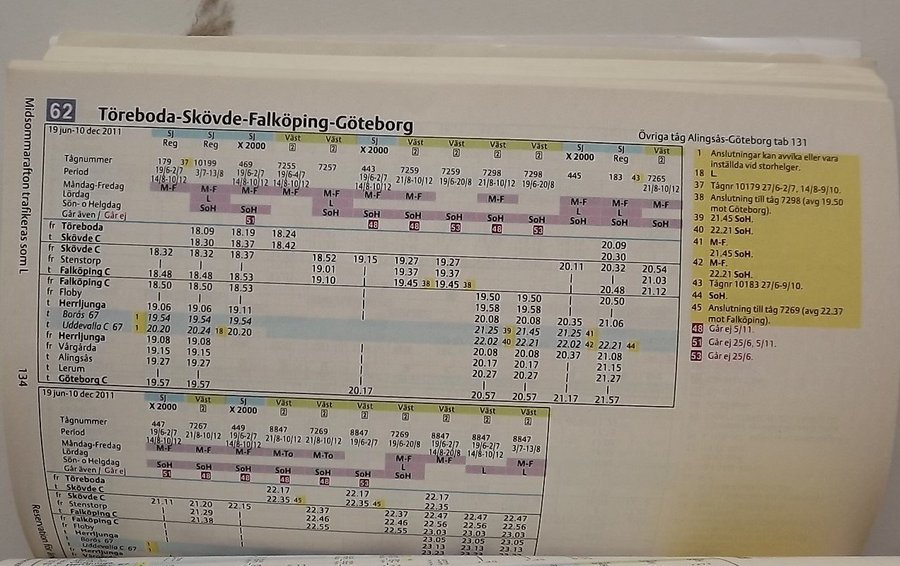 62 Töreboda-Skövde-Falköping-Göteborg
19 jun-10 dec 2011
Övriga tåg Alingsås-Göteborg tab 131
SJ Reg SJ Reg SJ X 2000 Väst 2 Väst 2 SJ X 2000 Väst 2 Väst 2 Väst 2 Väst 2 SJ X 2000 SJ Reg Väst 2
Tågnummer 179 37 10199 469 7255 7257 443 7259 7259 7298 7298 445 183 43 7265
Period 19/6-2/7 3/7-13/8 19/6-2/7 19/6-4/7 19/6-2/7 21/8-10/12 19/6-20/8 21/8-10/12 19/6-20/8 21/8-10/12
14/8-10/12 14/8-10/12 14/8-10/12 14/8-10/12
Måndag-Fredag
Lördag
Sön- o Helgdag
Går även / Går ej 51 48 48 53 48 53
fr Töreboda 18.09 18.19 18.24 20.09
t Skövde C 18.30 18.37 18.42 20.30
fr Skövde C 18.32 18.32 18.37 18.52 19.15 19.27 19.27 20.11 20.32 20.54
fr Stenstorp 19.01 19.37 19.37 21.03
t Falköping C 18.48 18.48 18.53 19.10 19.45 38 19.45 38 20.48 21.12
fr Falköping C 18.50 18.50 18.53 20.50
fr Floby 19.50 19.50
t Herrljunga 19.06 19.06 19.11 19.58 19.58 21.06
t Borås 67 1 19.54 19.54 19.54 20.08 20.08 20.35
t Uddevalla C 67 1 20.20 20.24 18 20.20 21.25 39 21.45 21.25 41
fr Herrljunga 19.08 19.08 22.02 40 22.21 22.02 42 22.21 44
fr Vårgårda 19.15 19.15 20.08 20.08 20.37 21.08
t Alingsås 19.27 19.27 20.17 20.17 21.15
t Lerum 20.27 20.27 21.27
t Göteborg C 19.57 19.57 20.17 20.57 20.57 21.17 21.57
1 Anslutningar kan avvika eller vara
inställda vid storhelger.
18 L.
37 Tågnr 10179 27/6-2/7, 14/8-9/10.
38 Anslutning till tåg 7298 (avg 19.50
mot Göteborg).
39 21.45 SoH.
40 22.21 SoH.
41 M-F.
21.45 SoH.
42 M-F.
22.21 SoH.
43 Tågnr 10183 27/6-9/10.
44 SoH.
45 Anslutning till tåg 7269 (avg 22.37
mot Falköping).
48 Går ej 5/11.
51 Går ej 25/6, 5/11.
53 Går ej 25/6.
Midsommarafton trafikeras som L
134
19 jun-10 dec 2011
SJ X 2000 Väst 2 SJ X 2000 Väst 2 Väst 2 Väst 2 Väst 2 Väst 2 Väst 2 Väst 2
Tågnummer 447 7267 449 8847 7269 8847 7269 8847 8847 8847
Period 19/6-2/7 21/8-10/12 19/6-2/7 21/8-10/12 21/8-10/12 19/6-2/7 19/6-20/8 19/6-2/7 19/6-2/7 3/7-13/8
14/8-10/12 14/8-10/12 14/8-20/8 14/8-10/12
Måndag-Fredag M-F M-F M-F M-To M-To M-F M-F M-F
Lördag L L L
Sön- o Helgdag SoH SoH SoH SoH SoH SoH SoH
Går även / Går ej 51 48 48 48 48 53
fr Töreboda 22.17 22.17 22.17
t Skövde C 22.35 45 22.35 45 22.35
fr Skövde C 21.11 21.20 22.15 22.37 22.37 22.47 22.47 22.47
fr Stenstorp 21.29 22.46 22.46 22.56 22.56 22.56
t Falköping C 21.38 22.55 22.55 23.03 23.03 23.03
fr Falköping C 23.05 23.05 23.05
fr Floby 23.13 23.13 23.13
t Herrljunga
t Borås 67 1
t Uddevalla C 67 1
fr Herrljunga
Reservation för